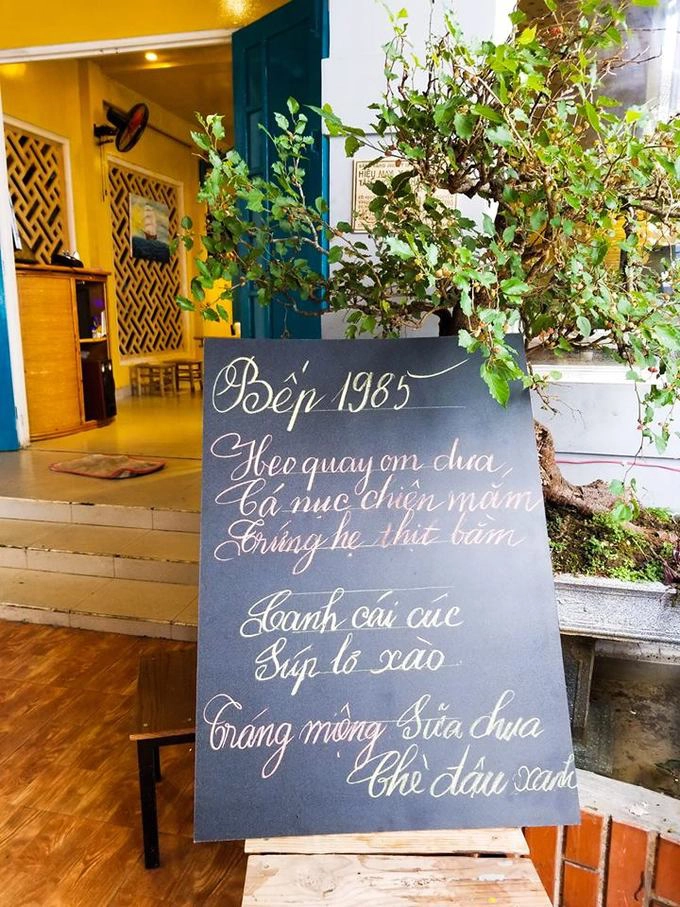 HIỆU MAY
Bếp 1985
Heo quay om dưa
Cá nục chiện mắm
Trứng hẹ thịt bằm
Canh cải cúc
Súp lơ xào
Tráng miệng Sữa chua
Chè đậu xanh